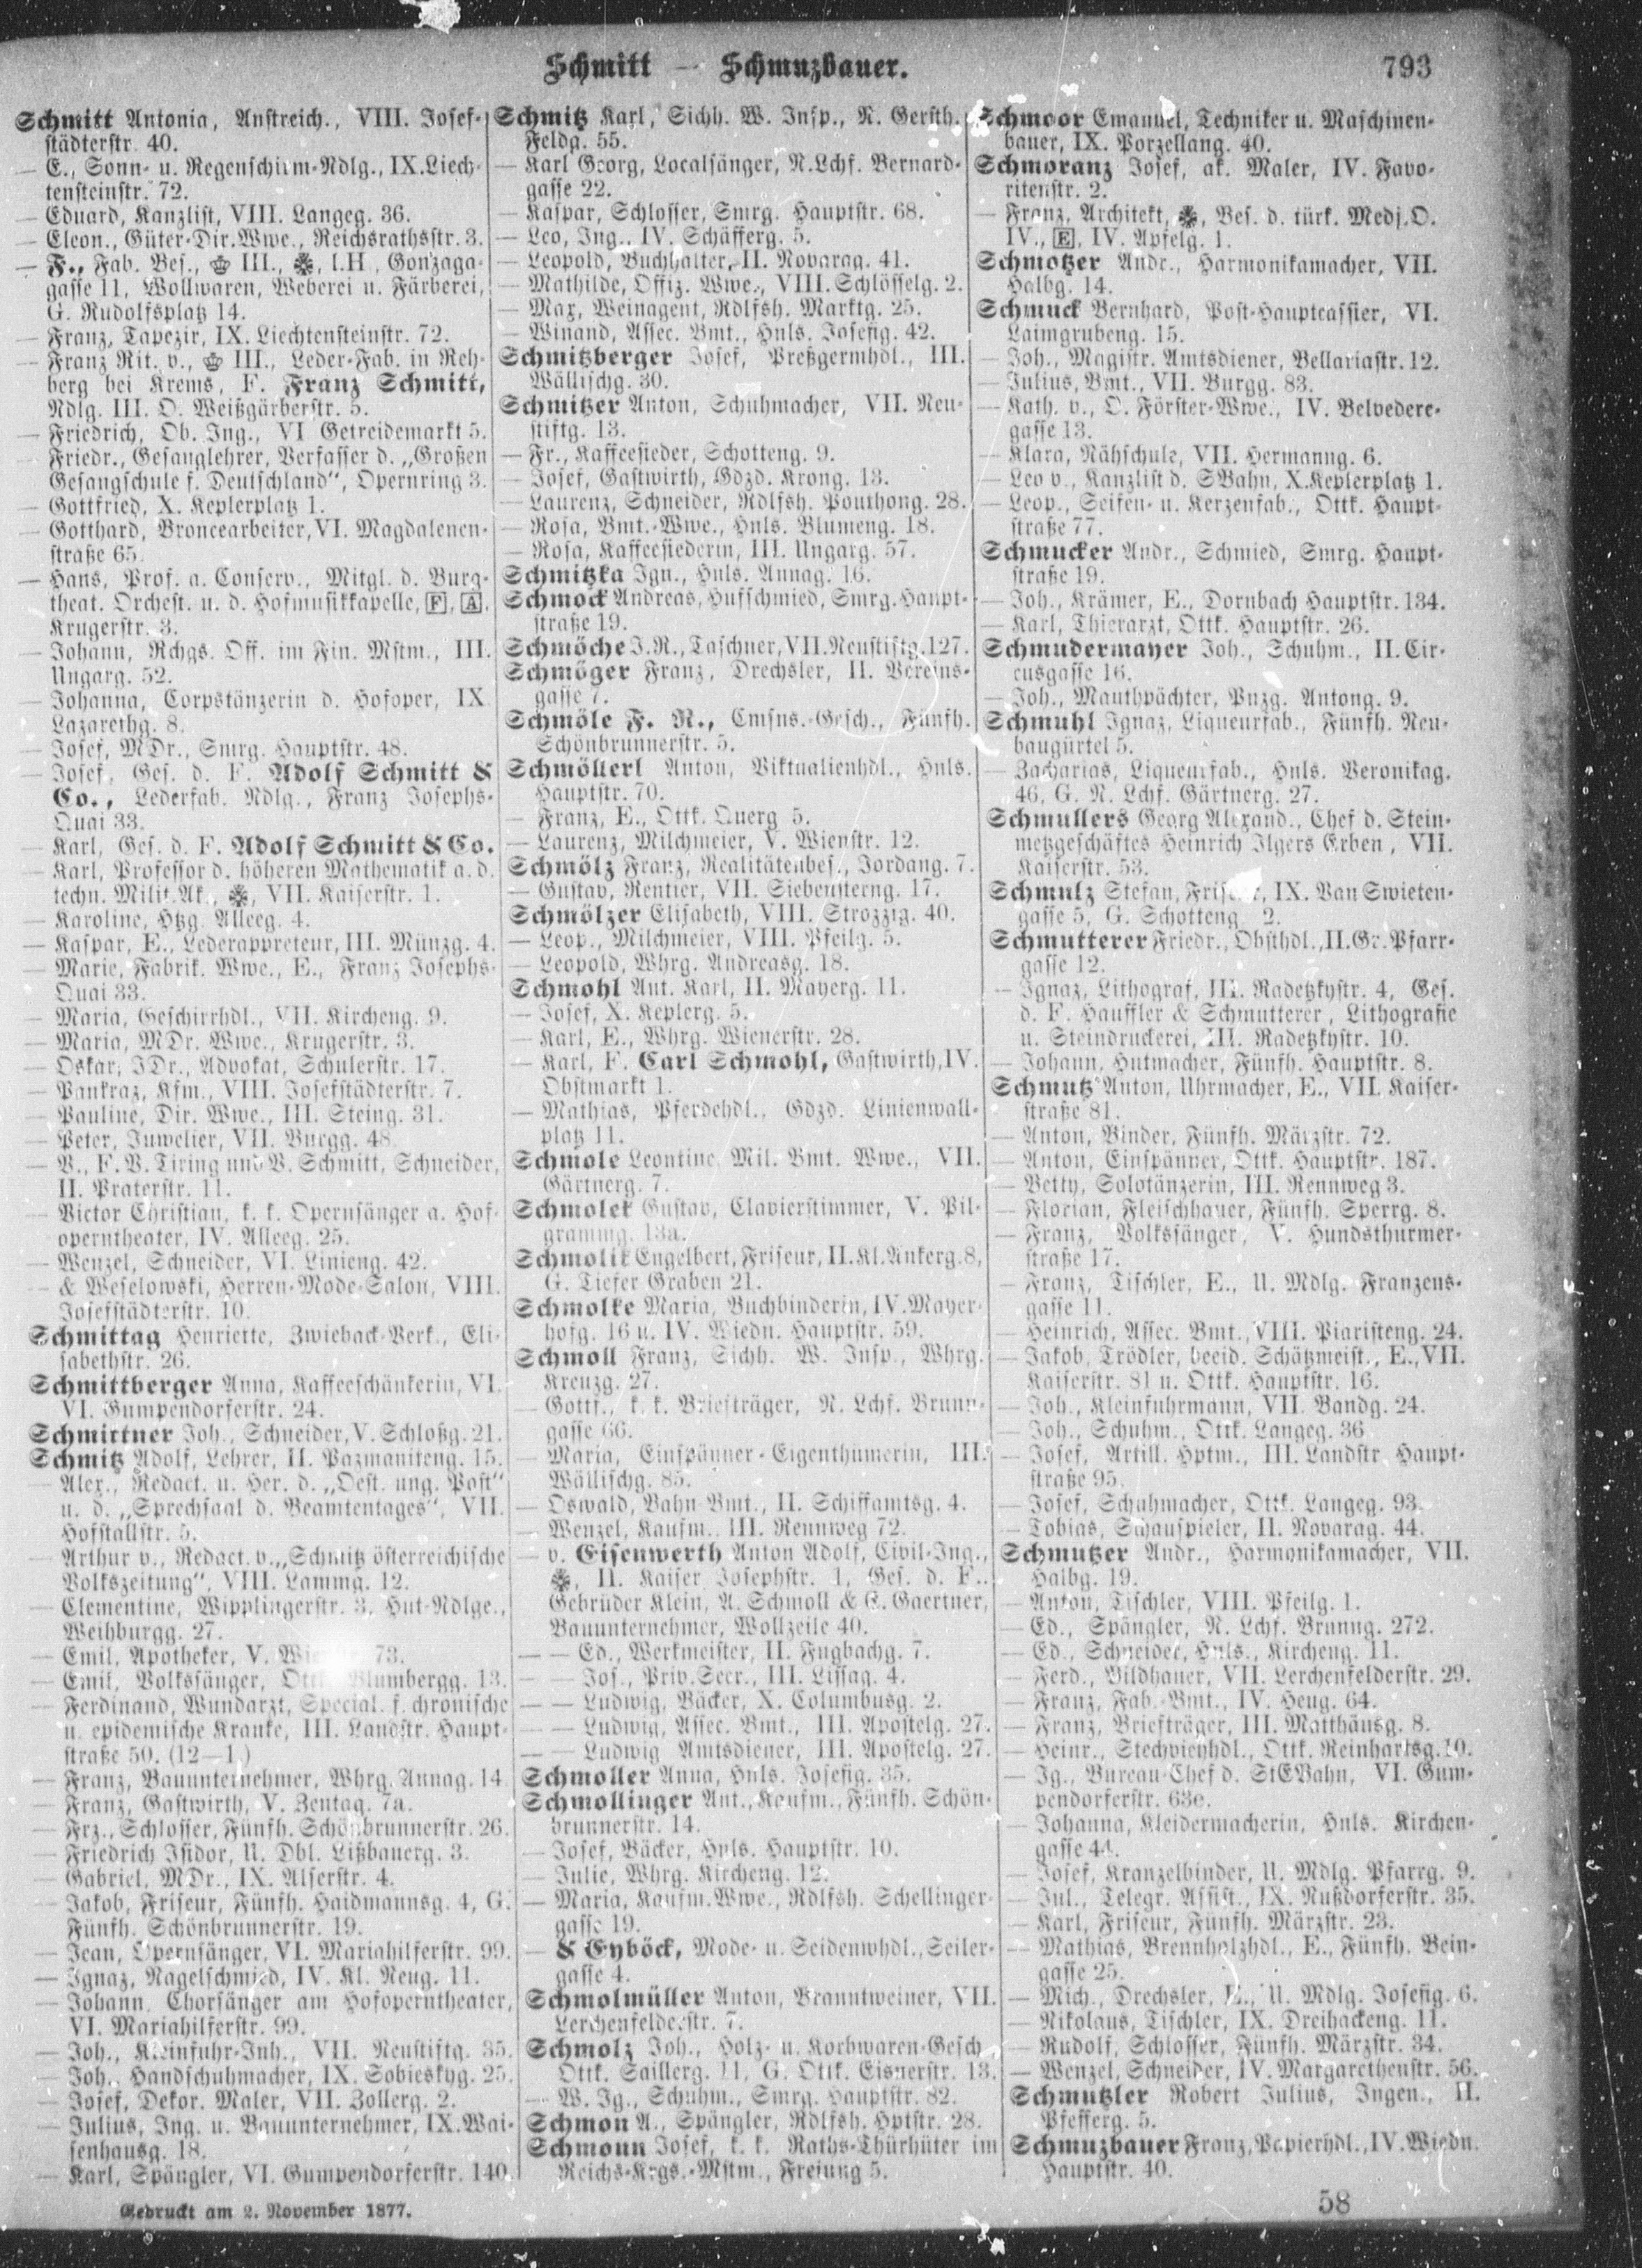 Schmitt — Schmuzbauer.
793
Schmitt Antonia, Anstreich., VIII. Josef-
städterstr. 40.
— E., Sonn- u. Regenschirm-Ndlg., IX. Liech-
tensteinstr. 72.
— Eduard, Kanzlist, VIII. Langeg. 36.
— Eleon., Güter-Dir. Wwe., Reichsrathsstr. 3.
— F., Fab. Bes., III., l. H., Gonzaga-
gasse 11, Wollwaren, Weberei u. Färberei,
G. Rudolfsplatz 14.
— Franz, Tapezir, IX. Liechtensteinstr. 72.
— Franz Rit. v., III., Leder-Fab. in Reh-
berg bei Krems, F. Franz Schmitt,
Ndlg. III. O. Weißgärberstr. 5.
— Friedrich, Ob. Ing., VI Getreidemarkt 5.
— Friedr., Gesanglehrer, Verfasser d. „Großen
Gesangschule f. Deutschland", Opernring 3.
— Gottfried, X. Keplerplatz 1.
— Gotthard, Broncearbeiter, VI. Magdalenen-
straße 65.
— Hans, Prof. a. Conserv., Mitgl. d. Burg-
theat. Orchest. u. d. Hofmusikkapelle, F, A,
Krugerstr. 3.
— Johann, Rchgs. Off. im Fin. Mstm., III.
Ungarg. 52.
— Johanna, Corpstänzerin d. Hofoper, IX
Lazarethg. 8.
— Josef, MDr., Smrg. Hauptstr. 48.
— Josef, Ges. d. F. Adolf Schmitt &
Co., Lederfab. Ndlg., Franz Josephs-
Quai 33.
— Karl, Ges. d. F. Adolf Schmitt & Co.
— Karl, Professor d. höheren Mathematik a. d.
techn. Milit. Ak., VII. Kaiserstr. 1.
— Karoline, Htzg. Alleeg. 4.
— Kaspar, E., Lederappreteur, III. Münzg. 4.
— Marie, Fabrik. Wwe., E., Franz Josephs-
Quai 33.
— Maria, Geschirrhdl., VII. Kircheng. 9.
— Maria, MDr. Wwe., Krugerstr. 3.
— Oskar, JDr., Advokat, Schulerstr. 17.
— Pankraz, Kfm., VIII. Josefstädterstr. 7.
— Pauline, Dir. Wwe., III. Steing. 31.
— Peter, Juwelier, VII. Burgg. 48.
— V., F. V. Tiring und V. Schmitt, Schneider,
II. Praterstr. 11.
— Victor Christian, k. k. Opernsänger a. Hof-
operntheater, IV. Alleeg. 25.
— Wenzel, Schneider, VI. Linieng. 42.
— & Weselowski, Herren-Mode-Salon, VIII.
Josefstädterstr. 10.
Schmittag Henriette, Zwieback-Verk., Eli-
sabethstr. 26.
Schmittberger Anna, Kaffeeschänkerin, VI.
VI. Gumpendorferstr. 24.
Schmittner Joh., Schneider, V. Schloßg. 21.
Schmitz Adolf, Lehrer, II. Pazmaniteng. 15.
— Alex., Redact. u. Her. d. „Oest. ung. Post"
u. d. „Sprechsaal d. Beamtentages", VII.
Hofstallstr. 5.
— Arthur v., Redact. v. „Schmitz österreichische
Volkszeitung", VIII. Lammg. 12.
— Clementine, Wipplingerstr. 3, Hut-Ndlge.,
Weihburgg. 27.
— Emil, Apotheker, V. 73.
— Emil, Volkssänger, Blumbergg. 13.
— Ferdinand, Wundarzt, Special. f. chronische
u. epidemische Kranke, III. Landstr. Haupt-
straße 50. (12—1.)
— Franz, Bauunternehmer, Whrg. Annag. 14.
— Franz, Gastwirth, V. Zentag. 7a.
— Frz., Schlosser, Fünfh. Schönbrunnerstr. 26.
— Friedrich Isidor, U. Dbl. Lißbauerg. 3.
— Gabriel, MDr., IX. Alserstr. 4.
— Jakob, Friseur, Fünfh. Haidmannsg. 4, G.
Fünfh. Schönbrunnerstr. 19.
— Jean, Opernsänger, VI. Mariahilferstr. 99.
— Ignaz, Nagelschmied, IV. Kl. Neug. 11.
— Johann, Chorsänger am Hofoperntheater,
VI. Mariahilferstr. 99.
— Joh., Kleinfuhr-Inh., VII. Neustiftg. 35.
— Joh., Handschuhmacher, IX. Sobieskyg. 25.
— Josef, Dekor. Maler, VII. Zollerg. 2.
— Julius, Ing. u. Bauunternehmer, IX. Wai-
senhausg. 18.
— Karl, Spängler, VI. Gumpendorferstr. 140.
Schmitz Karl, Sichh. W. Insp., N. Gersth.
Feldg. 55.
— Karl Georg, Localsänger, N. Lchf. Bernard-
gasse 22.
— Kaspar, Schlosser, Smrg. Hauptstr. 68.
— Leo, Ing., IV. Schäfferg. 5.
— Leopold, Buchhalter, II. Novarag. 41.
— Mathilde, Offiz. Wwe., VIII. Schlösselg. 2.
— Max, Weinagent, Rdlfsh. Marktg. 25.
— Winand, Assec. Bmt., Hnls. Josefig. 42.
Schmitzberger Josef, Preßgermhdl., III.
Wällischg. 30.
Schmitzer Anton, Schuhmacher, VII. Neu-
stiftg. 13.
— Fr., Kaffeesieder, Schotteng. 9.
— Josef, Gastwirth, Gdzd. Krong. 13.
— Laurenz, Schneider, Rdlfsh. Pouthong. 28.
— Rosa, Bmt.-Wwe., Hnls. Blumeng. 18.
— Rosa, Kaffeesiederin, III. Ungarg. 57.
Schmitzka Ign., Hnls. Annag. 16.
Schmock Andreas, Hufschmied, Smrg. Haupt-
straße 19.
Schmöche J. R., Taschner, VII. Neustiftg. 127.
Schmöger Franz, Drechsler, II. Vereins-
gasse 7.
Schmöle F. R., Cmsns.-Gesch., Fünfh.
Schönbrunnerstr. 5.
Schmöllerl Anton, Viktualienhdl., Hnls.
Hauptstr. 70.
— Franz, E., Ottk. Querg 5.
— Laurenz, Milchmeier, V. Wienstr. 12.
Schmölz Franz, Realitätenbes., Jordang. 7.
— Gustav, Rentier, VII. Siebensterng. 17.
Schmölzer Elisabeth, VIII. Strozzig. 40.
— Leop., Milchmeier, VIII. Pfeilg. 5.
— Leopold, Whrg. Andreasg. 18.
Schmohl Ant. Karl, II. Mayerg. 11.
— Josef, X. Keplerg. 5.
— Karl, E., Whrg. Wienerstr. 28.
— Karl, F. Carl Schmohl, Gastwirth, IV.
Obstmarkt 1.
— Mathias, Pferdehdl., Gdzd. Linienwall-
platz 11.
Schmole Leontine, Mil. Bmt. Wwe., VII.
Gärtnerg. 7.
Schmolek Gustav, Clavierstimmer, V. Pil-
gramg. 13a.
Schmolik Engelbert, Friseur, II. Kl. Ankerg. 8,
G. Tiefer Graben 21.
Schmolke Maria, Buchbinderin, IV. Mayer-
hofg. 16 u. IV. Wiedn. Hauptstr. 59.
Schmoll Franz, Sichh. W. Insp., Whrg.
Kreuzg. 27.
— Gottf., k. k. Briefträger, N. Lchf. Brunn-
gasse 66.
— Maria, Einspänner-Eigenthümerin, III.
Wällischg. 85.
— Oswald, Bahn-Bmt., II. Schiffamtsg. 4.
— Wenzel, Kaufm., III. Rennweg 72.
— v. Eisenwerth Anton Adolf, Civil-Ing.,
II. Kaiser Josephstr. 1, Ges. d. F.
Gebrüder Klein, A. Schmoll & E. Gaertner,
Bauunternehmer, Wollzeile 40.
— — Ed., Werkmeister, II. Fugbachg. 7.
— — Jos., Priv. Secr., III. Lissag. 4.
— — Ludwig, Bäcker, X. Columbusg. 2.
— — Ludwig, Assec. Bmt., III. Apostelg. 27.
— — Ludwig Amtsdiener, III. Apostelg. 27.
Schmoller Anna, Hnls. Josefig. 35.
Schmollinger Ant., Kaufm., Fünfh. Schön-
brunnerstr. 14.
— Josef, Bäcker, Hnls. Hauptstr. 10.
— Julie, Whrg. Kircheng. 12.
— Maria, Kaufm. Wwe., Rdlfsh. Schellinger-
gasse 19.
— & Eyböck, Mode- u. Seidenwhdl., Seiler-
gasse 4.
Schmolmüller Anton, Branntweiner, VII.
Lerchenfelderstr. 7.
Schmolz Joh., Holz- u. Korbwaren-Gesch
Ottk. Saillerg. 11, G. Ottk. Eisnerstr. 13.
— W. Ig., Schuhm., Smrg. Hauptstr. 82.
Schmon A., Spängler, Rdlfsh. Hptstr. 28.
Schmonn Josef, k. k. Raths-Thürhüter im
Reichs-Krgs.-Mstm., Freiung 5.
Schmoor Emanuel, Techniker u. Maschinen-
bauer, IX. Porzellang. 40.
Schmoranz Josef, ak. Maler, IV. Favo-
ritenstr. 2.
— Franz, Architekt, Bes. d. türk. Medj. O.
IV., E, IV. Apfelg. 1.
Schmotzer Andr., Harmonikamacher, VII.
Halbg. 14.
Schmuck Bernhard, Post-Hauptcassier, VI.
Laimgrubeng. 15.
— Joh., Magistr. Amtsdiener, Bellariastr. 12.
— Julius, Bmt., VII. Burgg. 83.
— Kath. v., O. Förster-Wwe., IV. Belvedere-
gasse 13.
— Klara, Nähschule, VII. Hermanng. 6.
— Leo v., Kanzlist d. SBahn, X. Keplerplatz 1.
— Leop., Seifen- u. Kerzenfab., Ottk. Haupt-
straße 77.
Schmucker Andr., Schmied, Smrg. Haupt-
straße 19.
— Joh., Krämer, E., Dornbach Hauptstr. 134.
— Karl, Thierarzt, Ottk. Hauptstr. 26.
Schmudermayer Joh., Schuhm., II. Cir-
cusgasse 16.
— Joh., Mauthpächter, Pnzg. Antong. 9.
Schmuhl Ignaz, Liqueurfab., Fünfh. Neu-
baugürtel 5.
— Zacharias, Liqueurfab., Hnls. Veronikag.
46, G. N. Lchf. Gärtnerg. 27.
Schmullers Georg Alexand., Chef d. Stein-
metzgeschäftes Heinrich Ilgers Erben, VII.
Kaiserstr. 53.
Schmulz Stefan, IX. Van Swieten-
gasse 5, G. Schotteng. 2.
Schmutterer Friedr., Obsthdl., II. Gr. Pfarr-
gasse 12.
— Ignaz, Lithograf, III. Radetzkystr. 4, Ges.
d. F. Hauffler & Schmutterer, Lithografie
u. Steindruckerei, III. Radetzkystr. 10.
— Johann, Hutmacher, Fünfh. Hauptstr. 8.
Schmutz Anton, Uhrmacher, E., VII. Kaiser-
straße 81.
— Anton, Binder, Fünfh. Märzstr. 72.
— Anton, Einspänner, Ottk. Hauptstr. 187.
— Betty, Solotänzerin, III. Rennweg 3.
— Florian, Fleischhauer, Fünfh. Sperrg. 8.
— Franz, Volkssänger, V. Hundsthurmer-
straße 17.
— Franz, Tischler, E., U. Mdlg. Franzens-
gasse 11.
— Heinrich, Assec. Bmt., VIII. Piaristeng. 24.
— Jakob, Trödler, beeid. Schätzmeist., E., VII.
Kaiserstr. 81 u. Ottk. Hauptstr. 16.
— Joh., Kleinfuhrmann, VII. Bandg. 24.
— Joh., Schuhm., Ottk. Langeg. 36
— Josef, Artill. Hptm., III. Landstr. Haupt-
straße 95.
— Josef, Schuhmacher, Ottk. Langeg. 93.
— Tobias, Schauspieler, II. Novarag. 44.
Schmutzer Andr., Harmonikamacher, VII.
Halbg. 19.
— Anton, Tischler, VIII. Pfeilg. 1.
— Ed., Spängler, N. Lchf. Brunng. 272.
— Ed., Schneider, Hnls., Kircheng. 11.
— Ferd., Bildhauer, VII. Lerchenfelderstr. 29.
— Franz, Fab.-Bmt., IV. Heug. 64.
— Franz, Briefträger, III. Matthäusg. 8.
— Heinr., Stechviehhdl., Ottk. Reinhartsg. 10.
— Ig., Bureau-Chef d. StEBahn, VI. Gum-
pendorferstr. 63e.
— Johanna, Kleidermacherin, Hnls. Kirchen-
gasse 44.
— Josef, Kranzelbinder, U. Mdlg. Pfarrg. 9.
— Jul., Telegr. Assist., IX. Nußdorferstr. 35.
— Karl, Friseur, Fünfh. Märzstr. 23.
— Mathias, Brennholzhdl., E., Fünfh. Bein-
gasse 25.
— Mich., Drechsler, E., U. Mdlg. Josefig. 6.
— Nikolaus, Tischler, IX. Dreihackeng. 11.
— Rudolf, Schlosser, Fünfh. Märzstr. 34.
— Wenzel, Schneider, IV. Margarethenstr. 56.
Schmutzler Robert Julius, Ingen., II.
Pfefferg. 5.
Schmuzbauer Franz, Papierhdl., IV. Wiedn.
Hauptstr. 40.
Gedruckt am 2. November 1877.
58